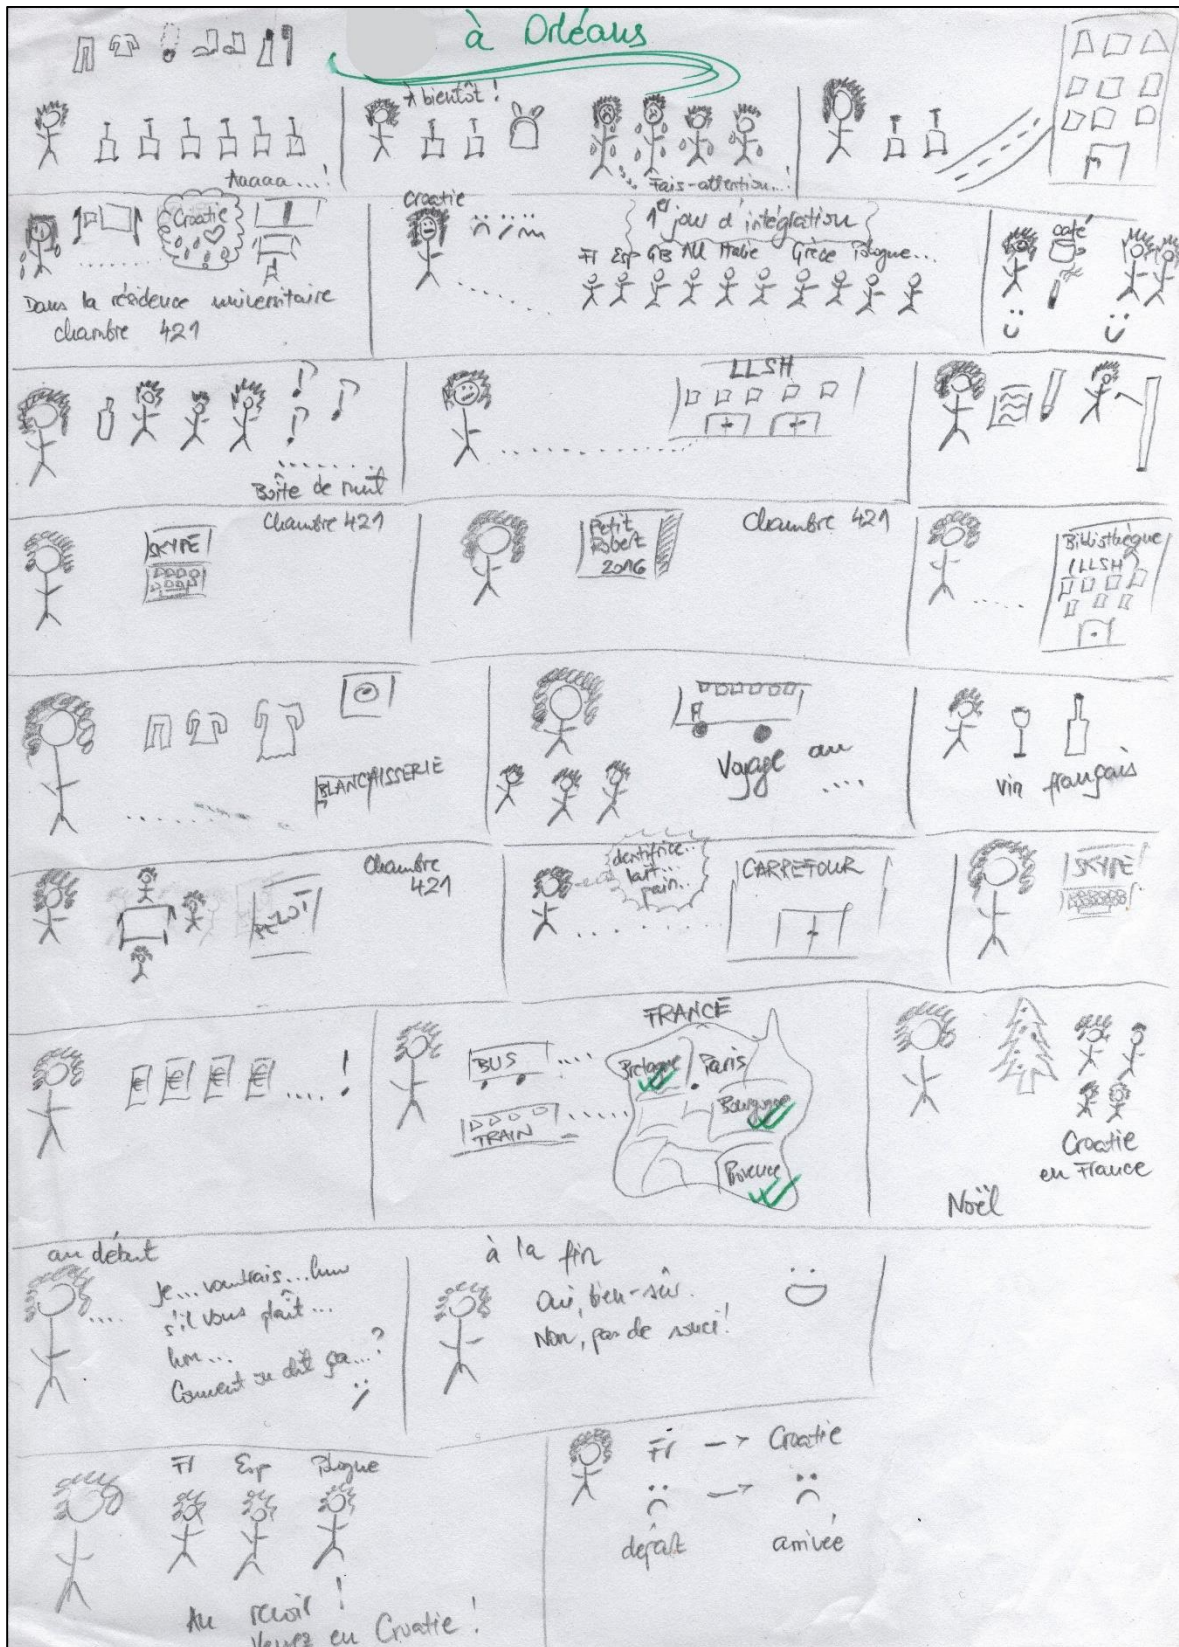 à Orléans
À bientôt !
Aaaaa...!
Fais-attention...!
Croatie
Dans la résidence universitaire
chambre 421
Croatie
1er jour d'intégration
Fr Esp GB All Italie Grèce Pologne...
café
Boîte de nuit
LLSH
Chambre 421
SKYPE
Chambre 421
Petit
Robert
2016
Bibliothèque
(LLSH)
BLANCAISSERIE
Voyage au
....
vin français
Chambre
421
dentifrice..
lait...
pain..
CARREFOUR
SKYPE
€ € € € ..... !
BUS
TRAIN
FRANCE
Bretagne
Paris
Bourgogne
Provence
Croatie
en France
Noël
au début
Je... voudrais... hm
s'il vous plaît...
hm...
Comment on dit ça...?
à la fin
Oui, bien-sûr.
Non, pas de souci!
Fr Esp Pologne
Au revoir !
Venez en Croatie !
Fr -> Croatie
départ
arrivée